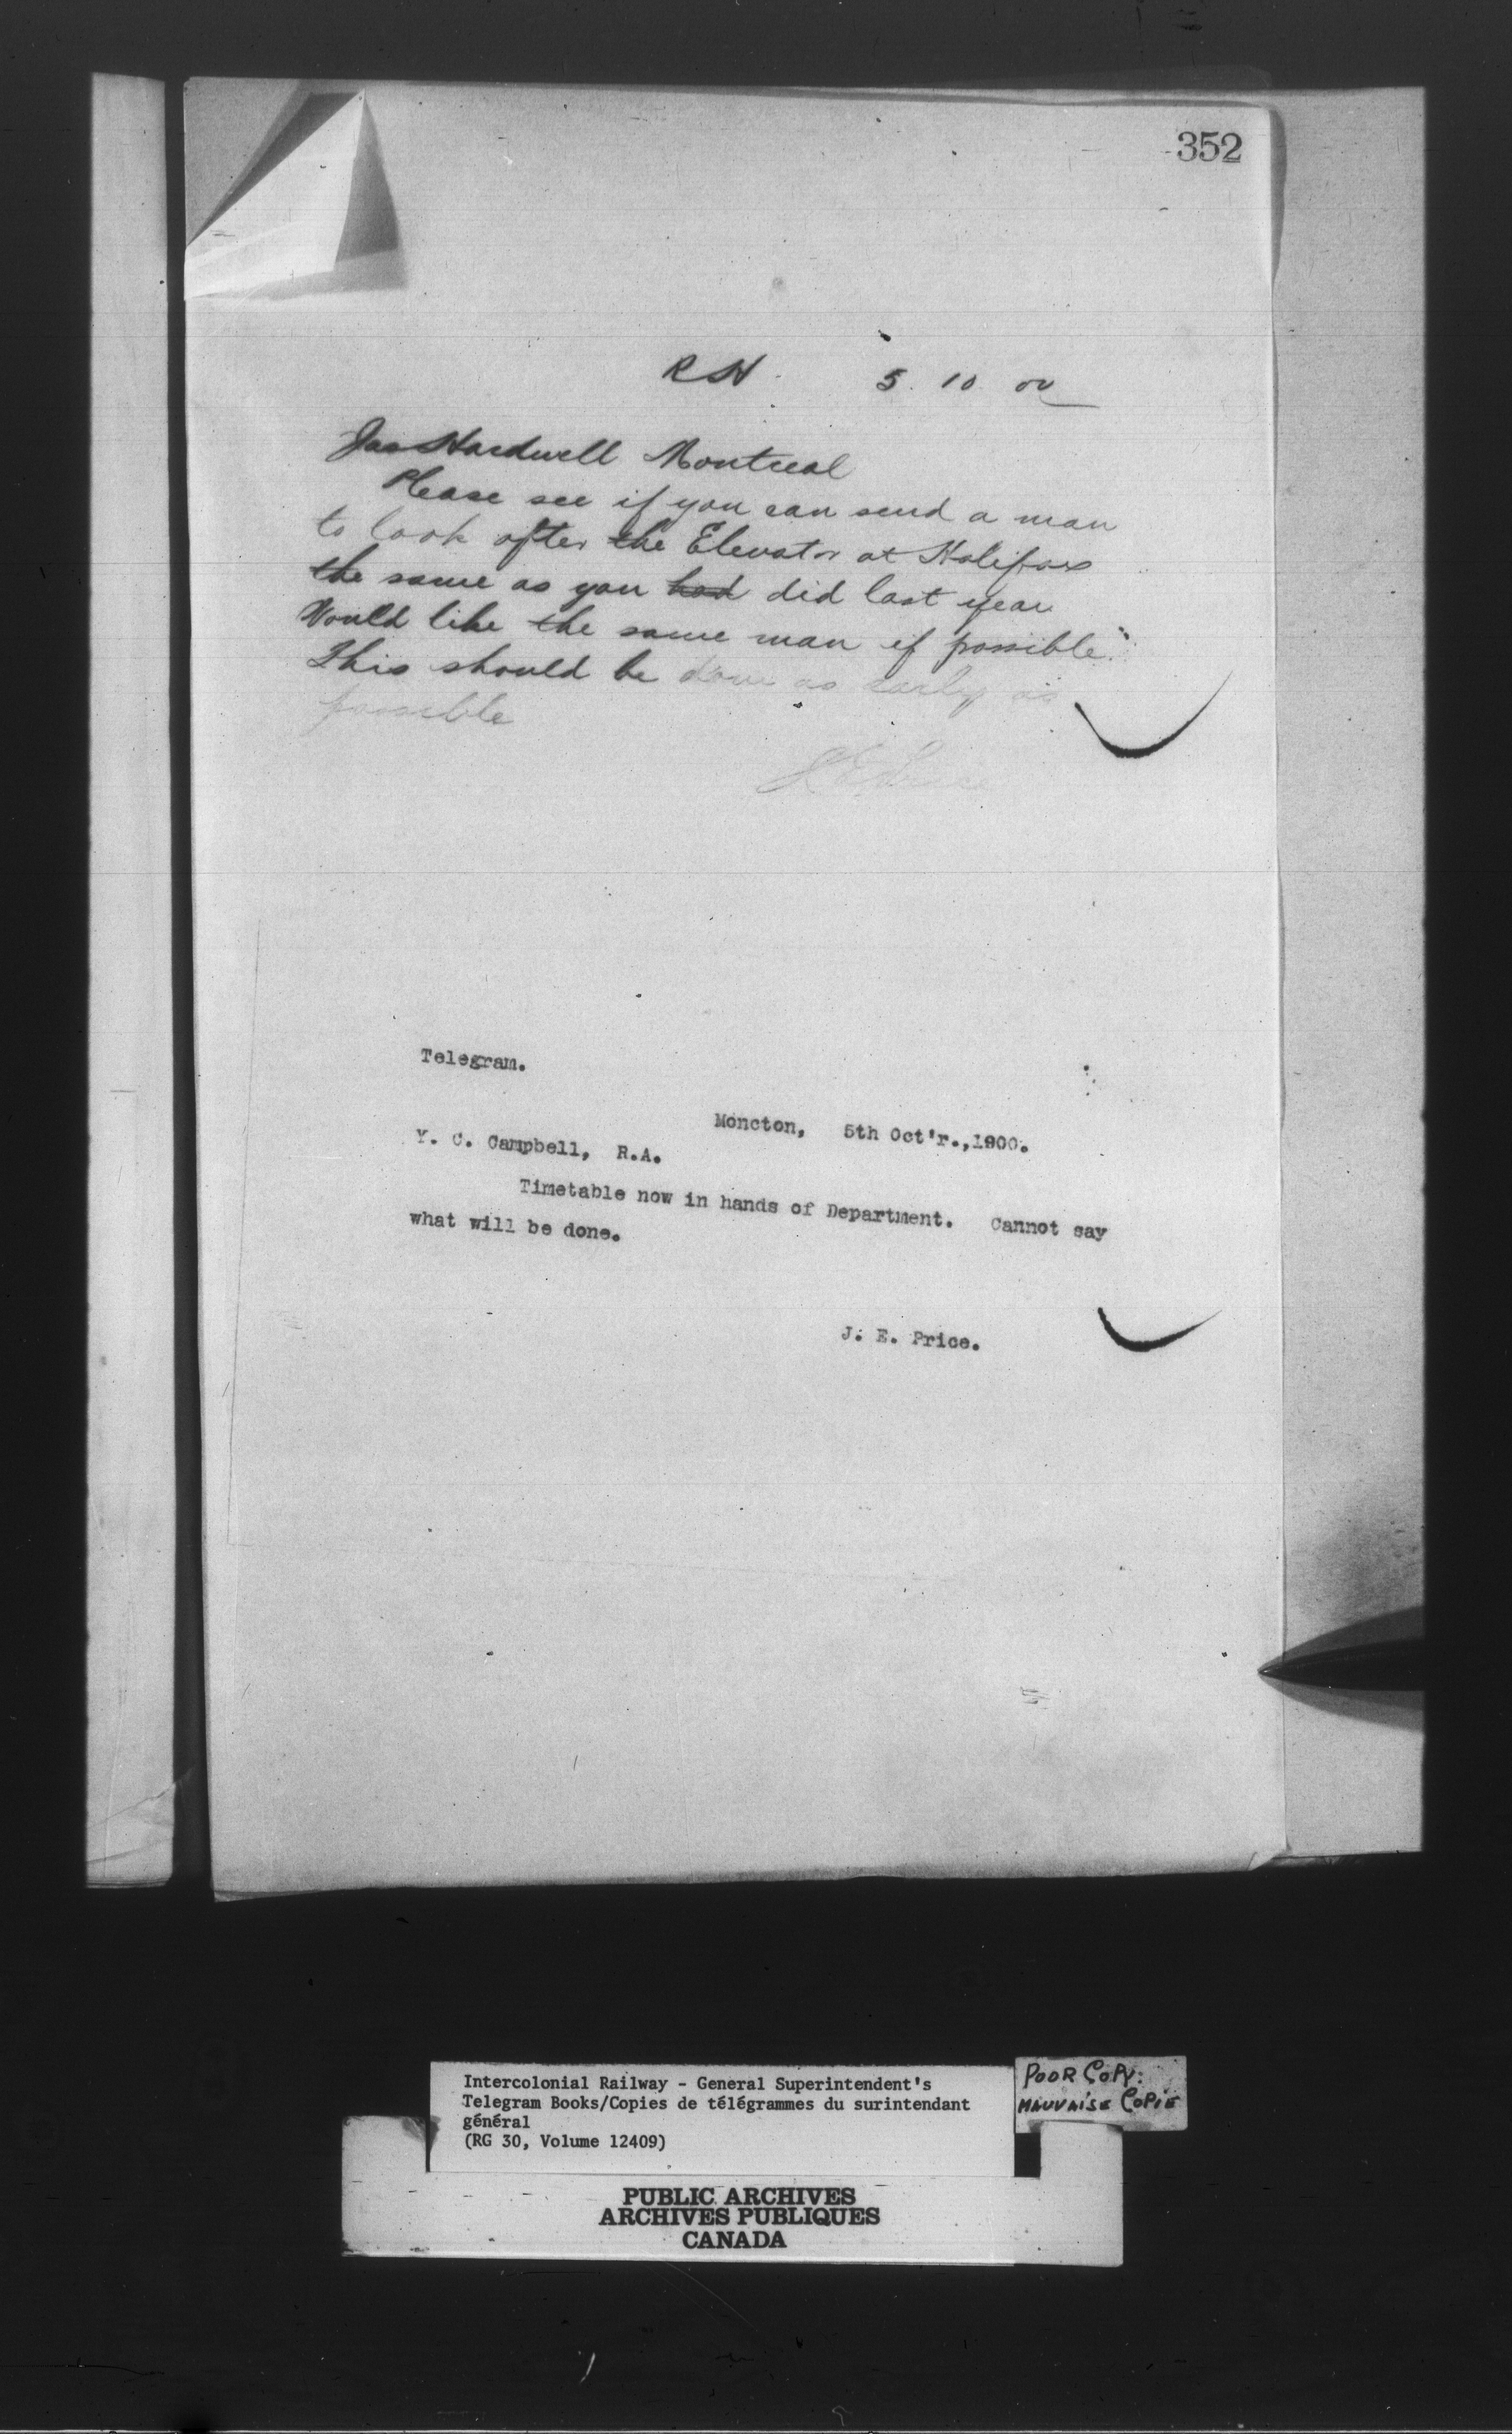 352
RH. 5. 10. 00
Jas Hardwell Montreal
Please see if you can send a man
to look after the Elevator at Halifax
the same as you had did last year
Would like the same man if possible.
This should be done as early as
possible
J E Price
Telegram.
Moncton, 5th Oct'r.,1900.
Y. C. Campbell, R.A.
Timetable now in hands of Department. Cannot say
what will be done.
J. E. Price.
Intercolonial Railway - General Superintendent's
Telegram Books/Copies de télégrammes du surintendant
général
(RG 30, Volume 12409)
POOR COPY:
MAUVAISE COPIE
PUBLIC ARCHIVES
ARCHIVES PUBLIQUES
CANADA